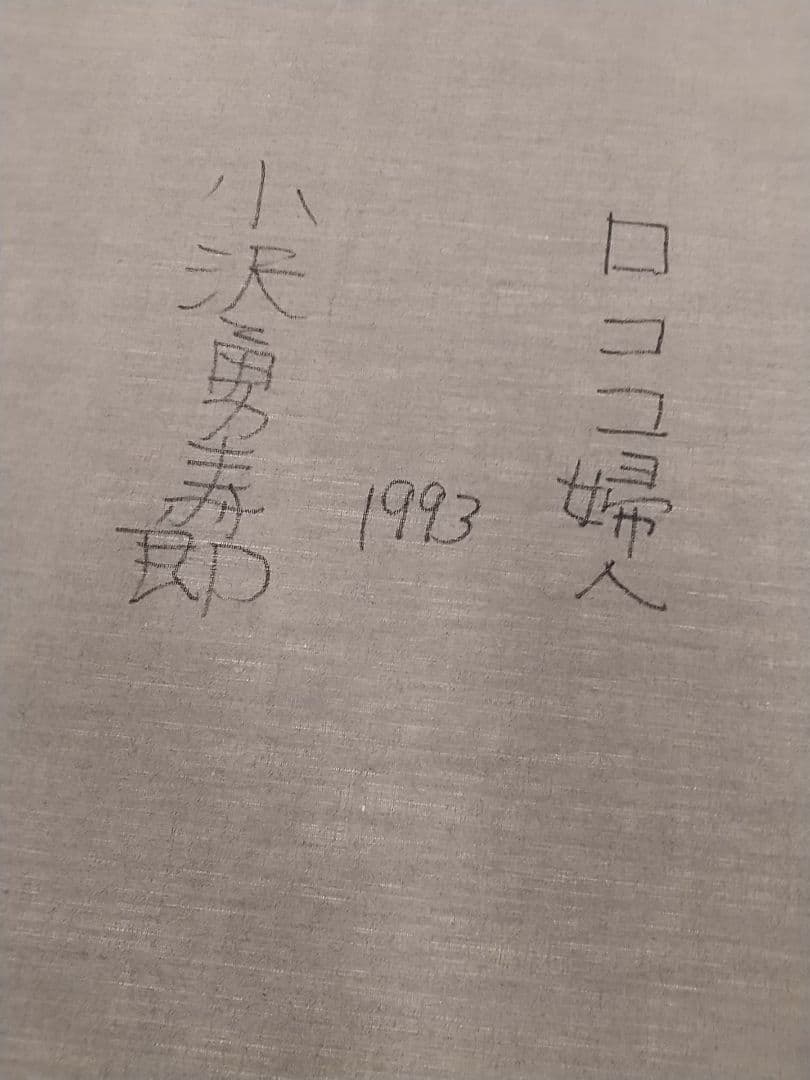 ロココ婦人
1993
小沢勇寿郎